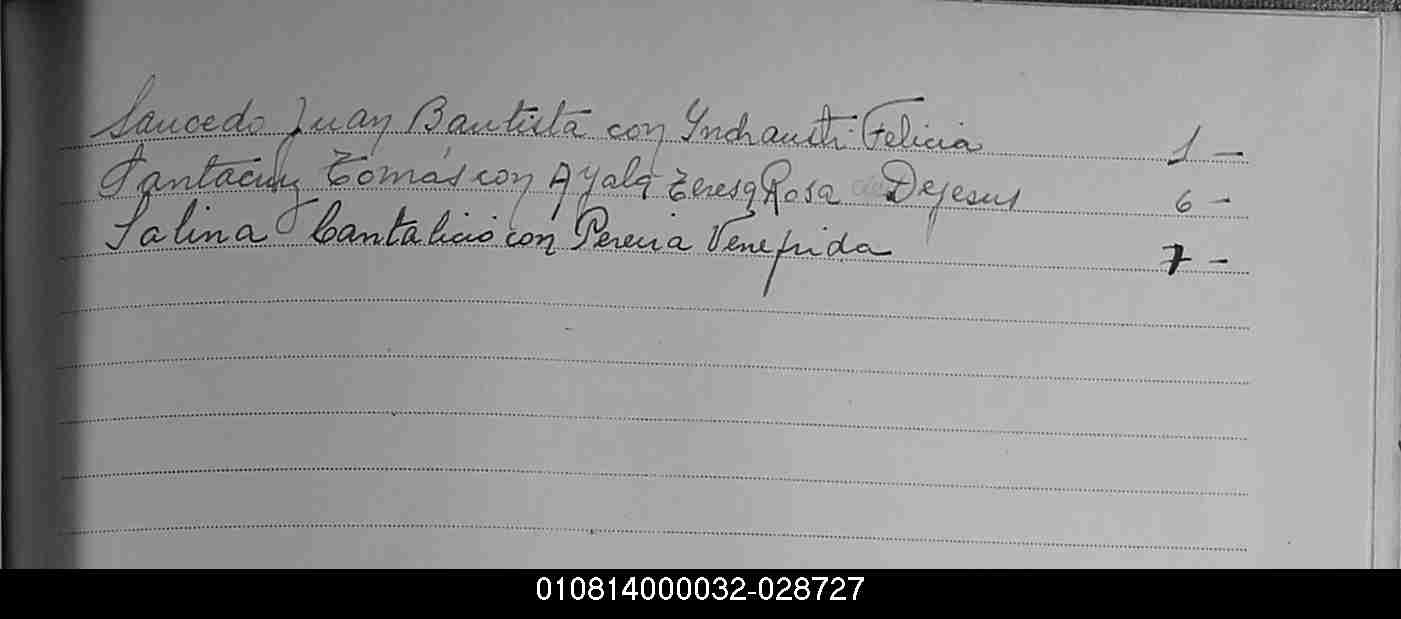 Saucedo Juan Bautista con Ynchausti Felicia 1 -
Santacruz Tomás con Ayala Teresa Rosa Dejesus 6 -
Salina Cantalicio con Pereira Venefrida 7 -
010814000032-028727